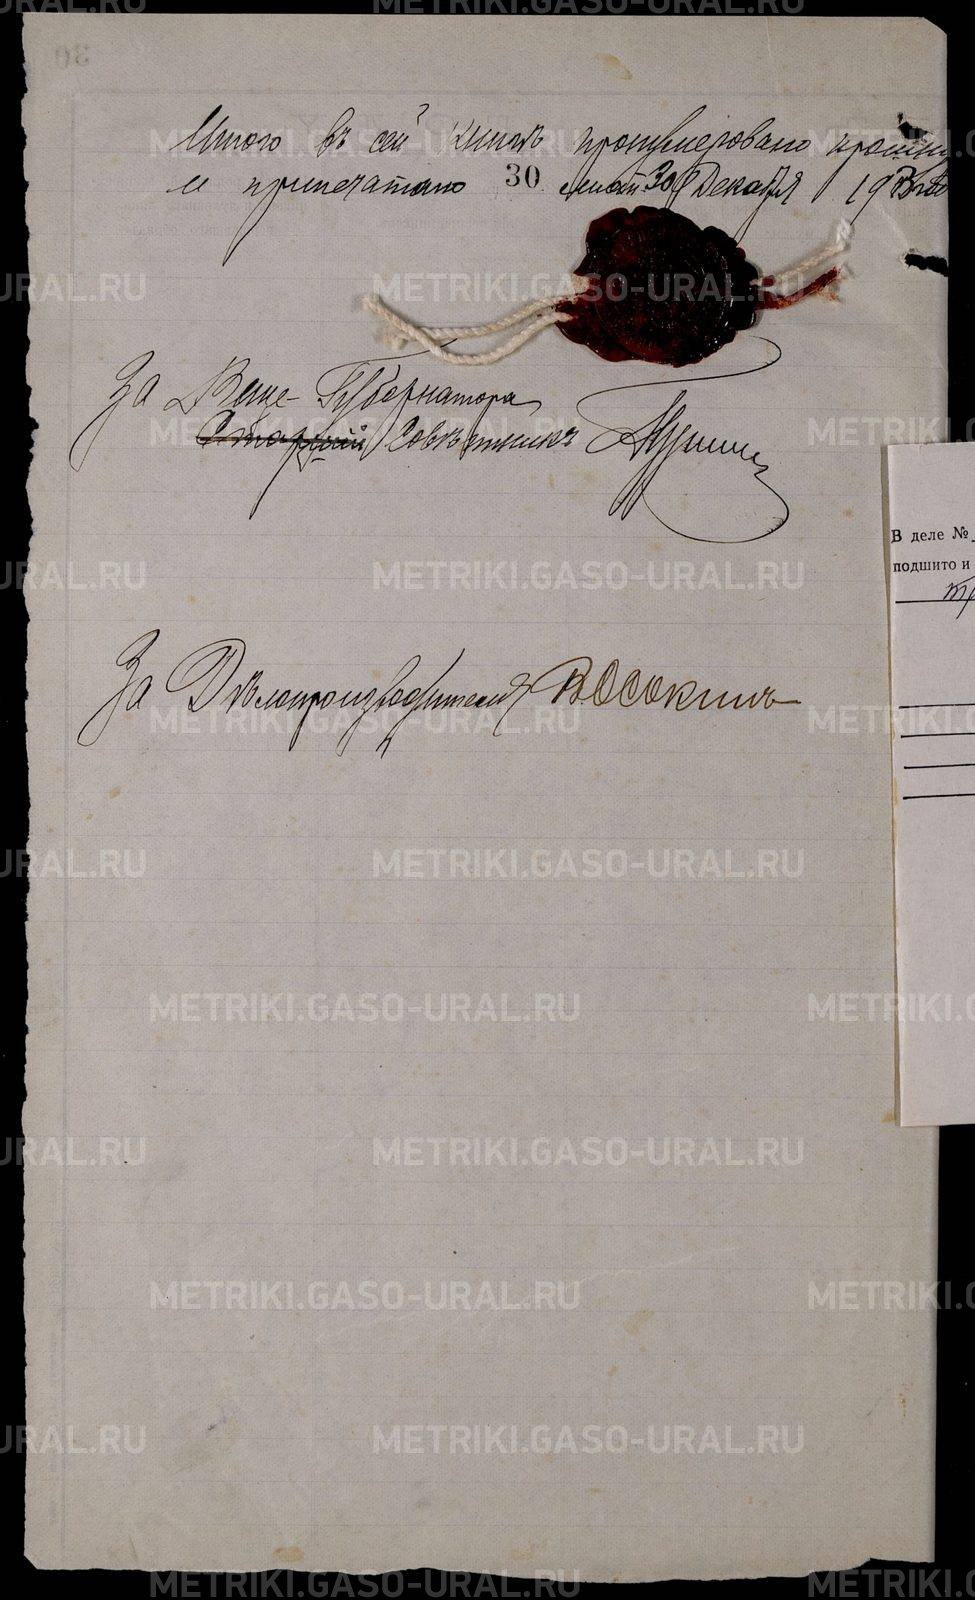 Итого въ сей книгѣ пронумеровано прошну
и припечатано 30 листъ 30 Декабря 19
За Вице-Губернатора
Старшій Совѣтникъ
За Дѣлопроизводителя В. Осокинъ
В деле №
подшито и
METRIKI.GASO-URAL.RU